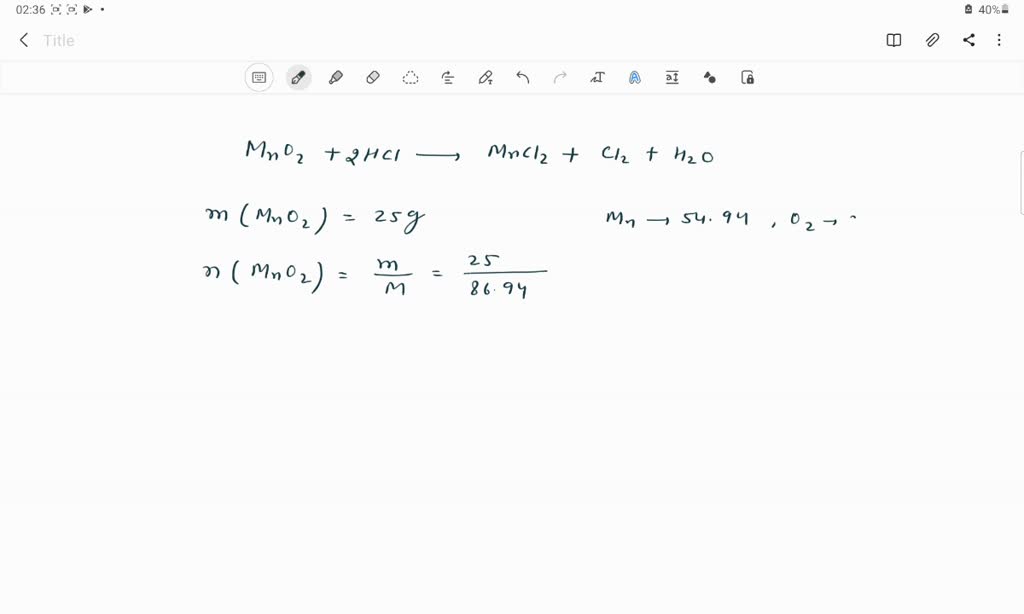 02:36 40%
Title
MnO2 + 2HCl → MnCl2 + Cl2 + H2O
m (MnO2) = 25g Mn → 54.94 , O2 →
n (MnO2) = m/M = 25/86.94